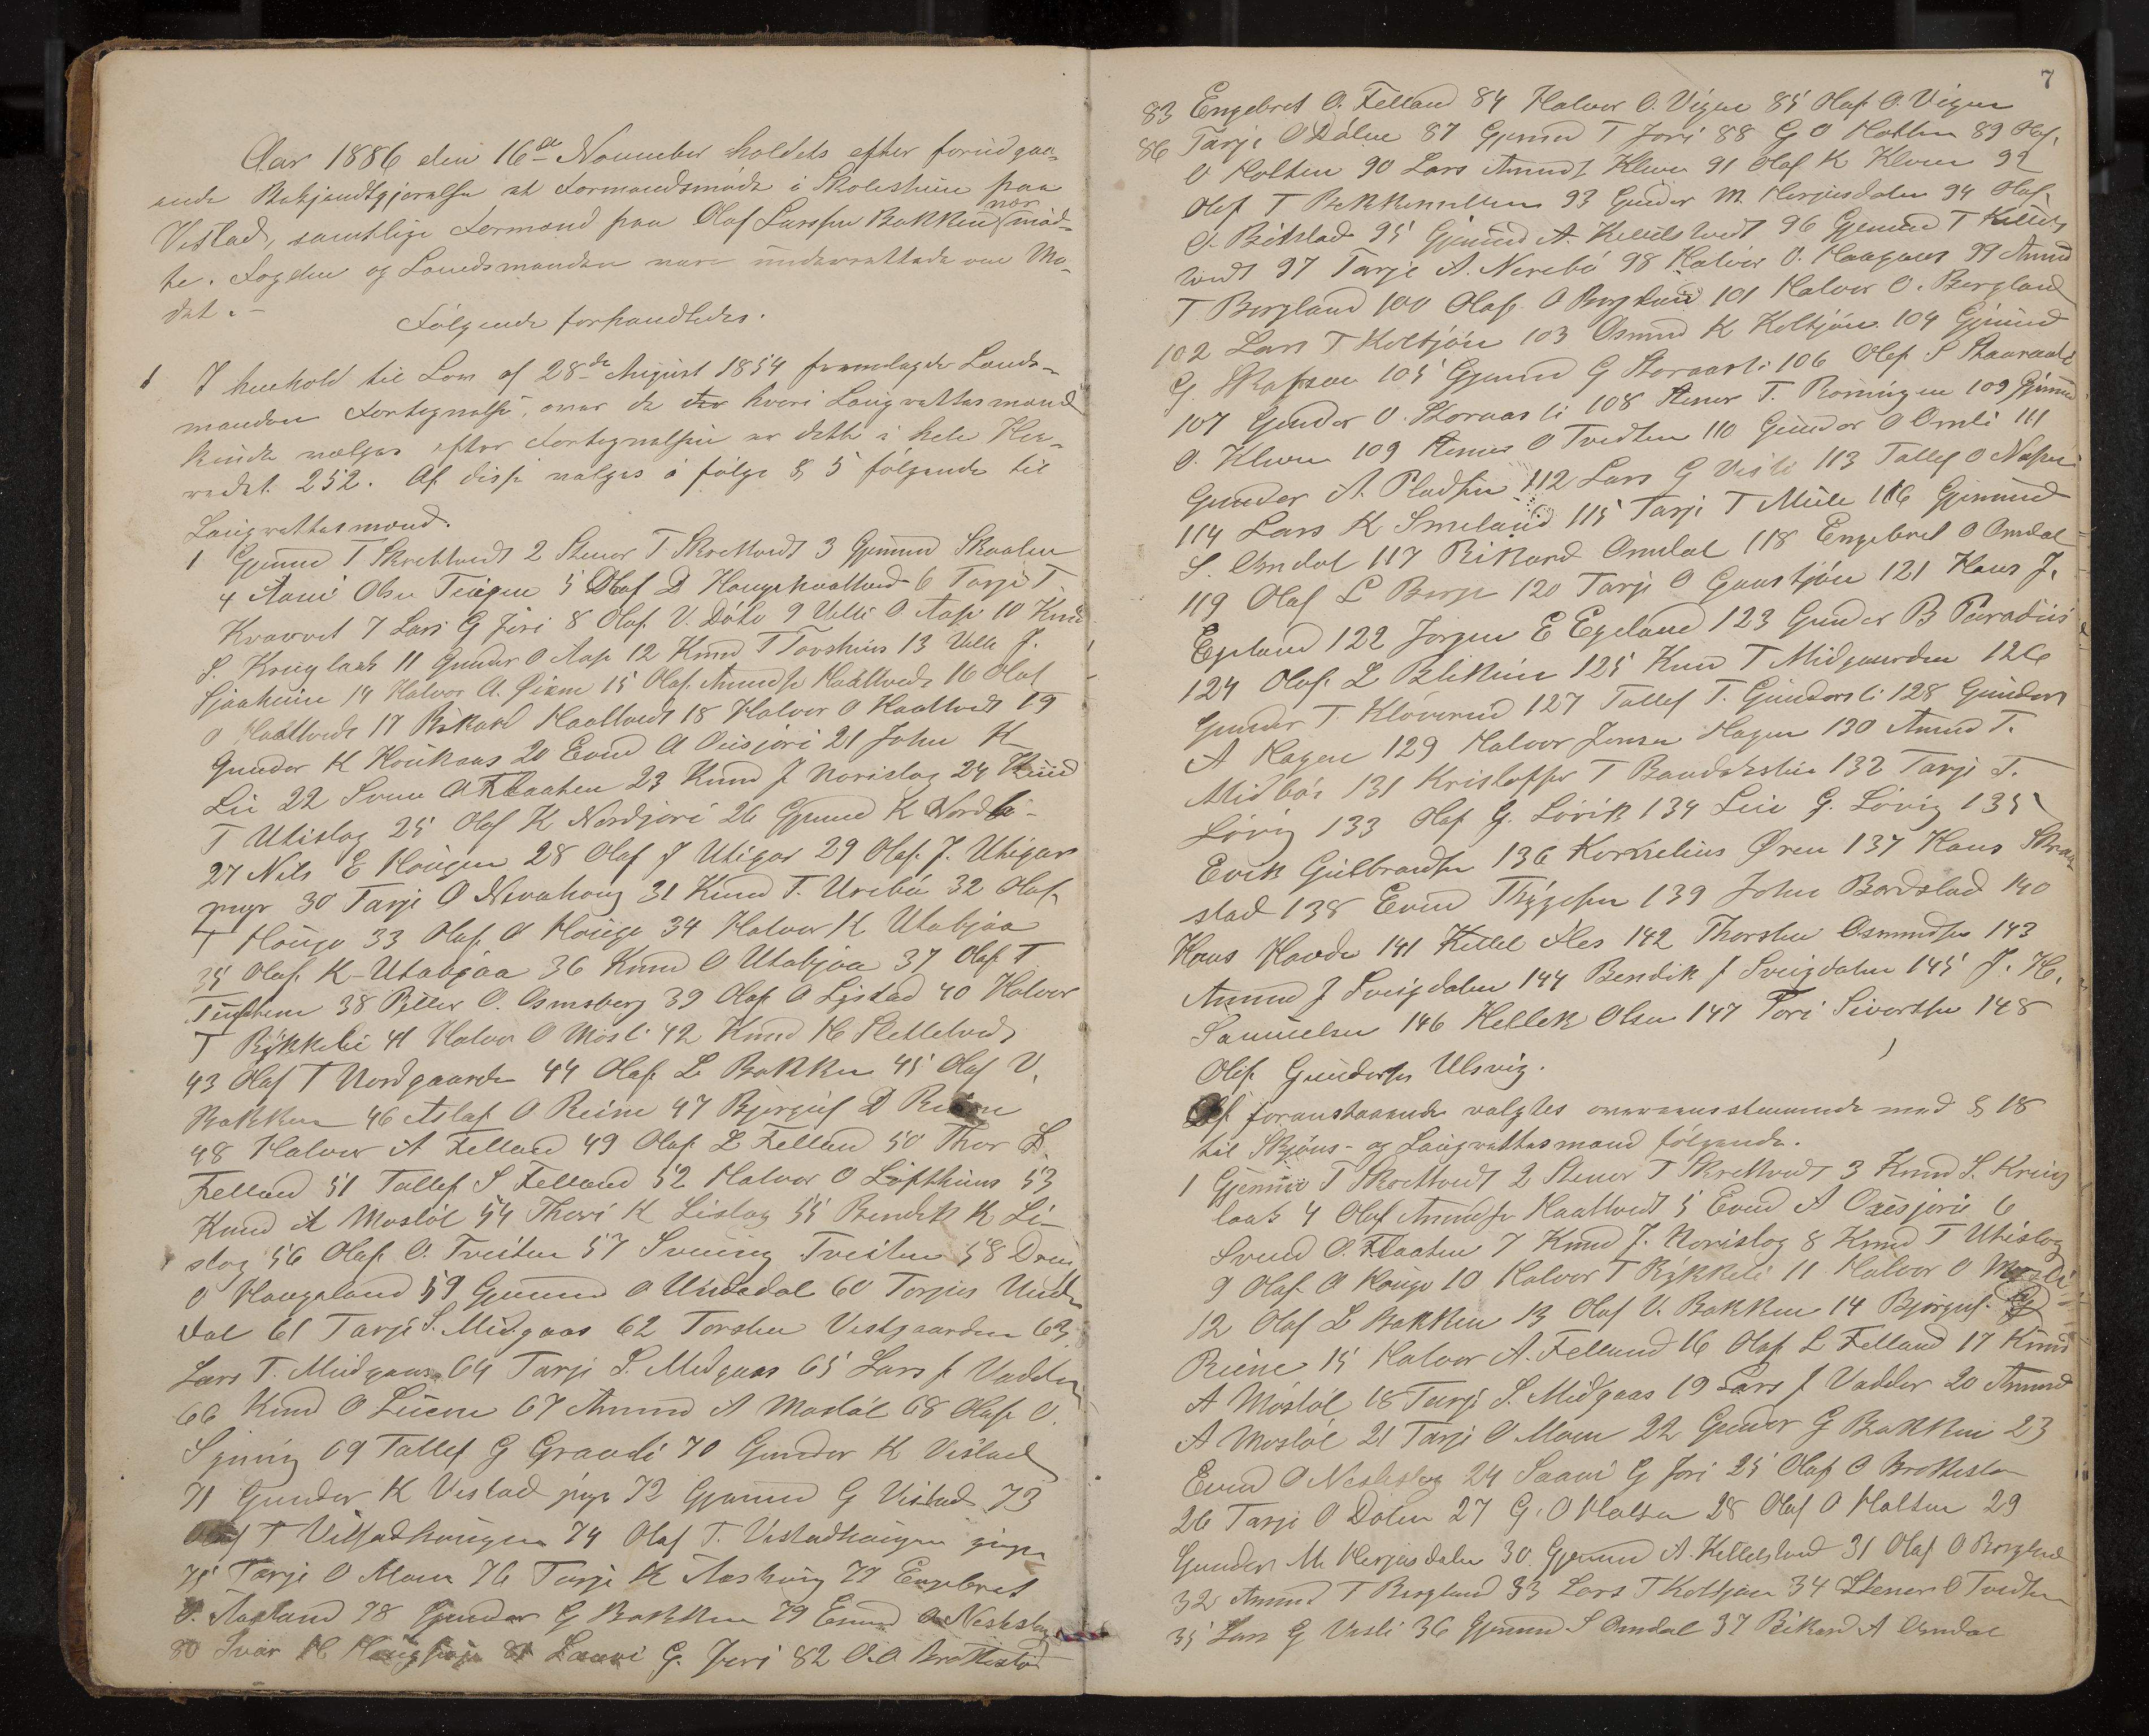 Aar 1886 den 16de November holdtes efter forudgaa-
ende Bekjendtgjørelse et Formandsmøde i Skolestuen paa
Vistad, samtlige Formænd paa Olaf Larssen Bakken nær mød-
te. Fogden og Lensmanden vare underrettede om Mø-
det.-
Følgende forhandledes.
1 I henhold til Lov af 28de August 1854 fremlagde Lends-
manden Fortegnelse, over de hvori Laugrettesmænd
kunde vælges efter Fortegnelsen er dette i hele Her-
redet 252. Af disse valges i følge § 5 følgende til
Laugrettesmænd.
1 Gjermund T Skrettvedt 2 Stener T Skrettvedt 3 Gjermund Skaalen
4 Aani Olsen Teigen 5 Olaf D Haugehaatvedt 6 Tarje T.
Kravvet 7 Lars G Jøri 8 Olaf V. Døhl 9 Ulli O Aase 10 Knud
S. Kruglaas 11 Gunder O Aase 12 Knud T Tovshus 13 Ulle J.
Sjaaheim 14 Halvor A. Øian 15 Olaf Amundsen Haatvedt 16 Olaf
O Haatvedt 17 Rikard Haatvedt 18 Halvor O Haatvedt 19
Gunder K Houkaas 20 Evind A Oüsjøri 21 John K
Lie 22 Svein A Flaaten 23 Knud J Norislog 24 Knud
T Utislog 25 Olaf K Nordjøri 26 Gjermund K Nordbø-
27 Nils E Haugen 28 Olaf J Utigar 29 Olaf J. Utigar
yngr 30 Tarje O Nerahaug 31 Knud T. Urebø 32 Olaf
T Houge 33 Olaf O Houge 34 Halvor K Utabjaa
35 Olaf K Utabjaa 36 Knud O Utabjaa 37 Olaf T
38 Peller O. Osmoberg 39 Olaf O Lystad 40 Halvor
T Rykkeli 41 Halvor O Mosli 42 Knud H Slettetvedt
43 Olaf T Nordgaarden 44 Olaf L Bakken 45 Olaf V.
Bakken 46 Aslak O Reine 47 Bjørguf D Reine
48 Halvor A Felland 49 Olaf L Felland 50 Thor L.
Felland 51 Tallef S Felland 52 Halvor O Lofthuus 53
Knud A Mostøl 54 Thori K Lislog 55 Bendik K Li-
slog 56 Olaf O. Tveiten 57 Sveinung Tveiten 58 Dreng
O Haugeland 59 Gjermund O Undedal 60 Torjus Unde-
dal 61 Tarje S. Midgaas 62 Torsten Vestgaarden 63
Lars T. Midgaas 64 Tarje L. Midgaas 65 Lars J Vadder
66 Knud O Luene 67 Amund A Mostøl 68 Olaf O.
69 Tallef G Graadi 70 Gunder K Vistad
71 Gunder K Vistad yngr 72 Gjermund G Vistad 73
Olaf T Vistadhaugen 74 Olaf T. Vistadhaugen yngre
75 Tarje O Moen 76 Tarje K Aashaug 77 Engebret
O. Aasland 78 Gunder G Bakken 79 Evind O Neslislog
80 Ivar H 81 Laavi G. Jøri 82 O.O Brottestø
7
83 Engebret O. Felland 84 Halvor O. Vigen 85 Olaf O. Vigen
86 Tarje O Dalen 87 Gjermund T Jøri 88 G O Holten 89 Olaf
O Holten 90 Lars Amunds Kleven 91 Olaf K Kleven 92
Olef T Bekkemellem 93 Gunder M Herjusdalen 94 Olaf
O. Bøkstad 95 Gjermund A. Kittilstvedt 96 Gjermund T Kittils-
tvedt 97 Tarje A. Nerebø 98 Halvor O. Haugaas 99 Amund
T Bergland 100 Olaf O Bergland 101 Halvor O. Bergland
102 Lars T Koltjøn 103 Osmund K Koltjøn 104 Gjermund
G. Skafsaa 105 Gjermund G Storaasli 106 Olef S Staurvaald
107 Gunder O. Storaasli 108 Stener T. Roningen 109 Gjermund
O. Kleven 109 Stener O Tvedten 110 Gunder O Omli 111
Gunder A. Pladsen 112 Lars G Visli 113 Tallef O Nesen
114 Lars K Smeland 115 Tarje T Mule 116 Gjermund
S. Omdal 117 Rikard Omdal 118 Engebret O Omdal
119 Olaf L Berge 120 Tarje O Gaastjøn 121 Hans J.
Egeland 122 Jørgen E Egeland 123 Gunder B Paradiis
124 Olaf L Blikum 125 Knud T Midgaarden 126
Gunder T. Kløverud 127 Tallef T. Gundersli 128 Gunder
A Hagen 129 Halvor Jensen Hagen 130 Amund T.
Midbøe 131 Kristoffer T Bandakslie 132 Tarje T.
Løvig 133 Olaf G. Løvik 134 Leiv G. Løvig 135
Evik Gulbrandsen 136 Kornelius Øren 137 Hans Straa-
stad 138 Evind Thygesen 139 John Bordstad 140
Hans Haade 141 Kittel Nes 142 Thorsten Osmundsen 143
Amund J Sveigdalen 144 Bendik J Sveigdalen 145 J. H.
Samuelsen 146 Hellek Olsen 147 Tori Sivertsen 148
Olef Gundersen Ulsvig.
Af foranstaaende valgtes overensstemmende med § 18
til Skjøns- og Laugrettesmænd følgende.
1 Gjermund T Skrettvedt 2 Stener T Skrettvedt 3 Knud S. Krug-
laas 4 Olaf Amundsen Haatvedt 5 Evind A Oüsjøri 6
Svend O. Flaaten 7 Knud J. Norislog 8 Knud T Utislog
9 Olaf O Houge 10 Halvor T Rykkeli 11 Halvor O Mosli
12 Olaf L Bakken 13 Olaf V. Bakken 14 Bjørguf D
Reine 15 Halvor A. Felland 16 Olaf L Felland 17 Knud
A Mostøl 18 Tarje S. Midgaas 19 Lars J Vadder 20 Amund
A Mostøl 21 Tarje O Moen 22 Gunder G Bakken 23
Evind O Neslislog 24 Laavi G Jøri 25 Olaf O Brottestø
26 Tarje O Dalen 27 G. O Holten 28 Olaf O Holten 29
Gunder M. Herjusdalen 30 Gjermund A. Kittelstved 31 Olaf O Bergland
32 Amund T Bergland 33 Lars T Koltjøn 34 Stener O Tvedten
35 Lars G Visli 36 Gjermund S Omdal 37 Rikard A Omdal